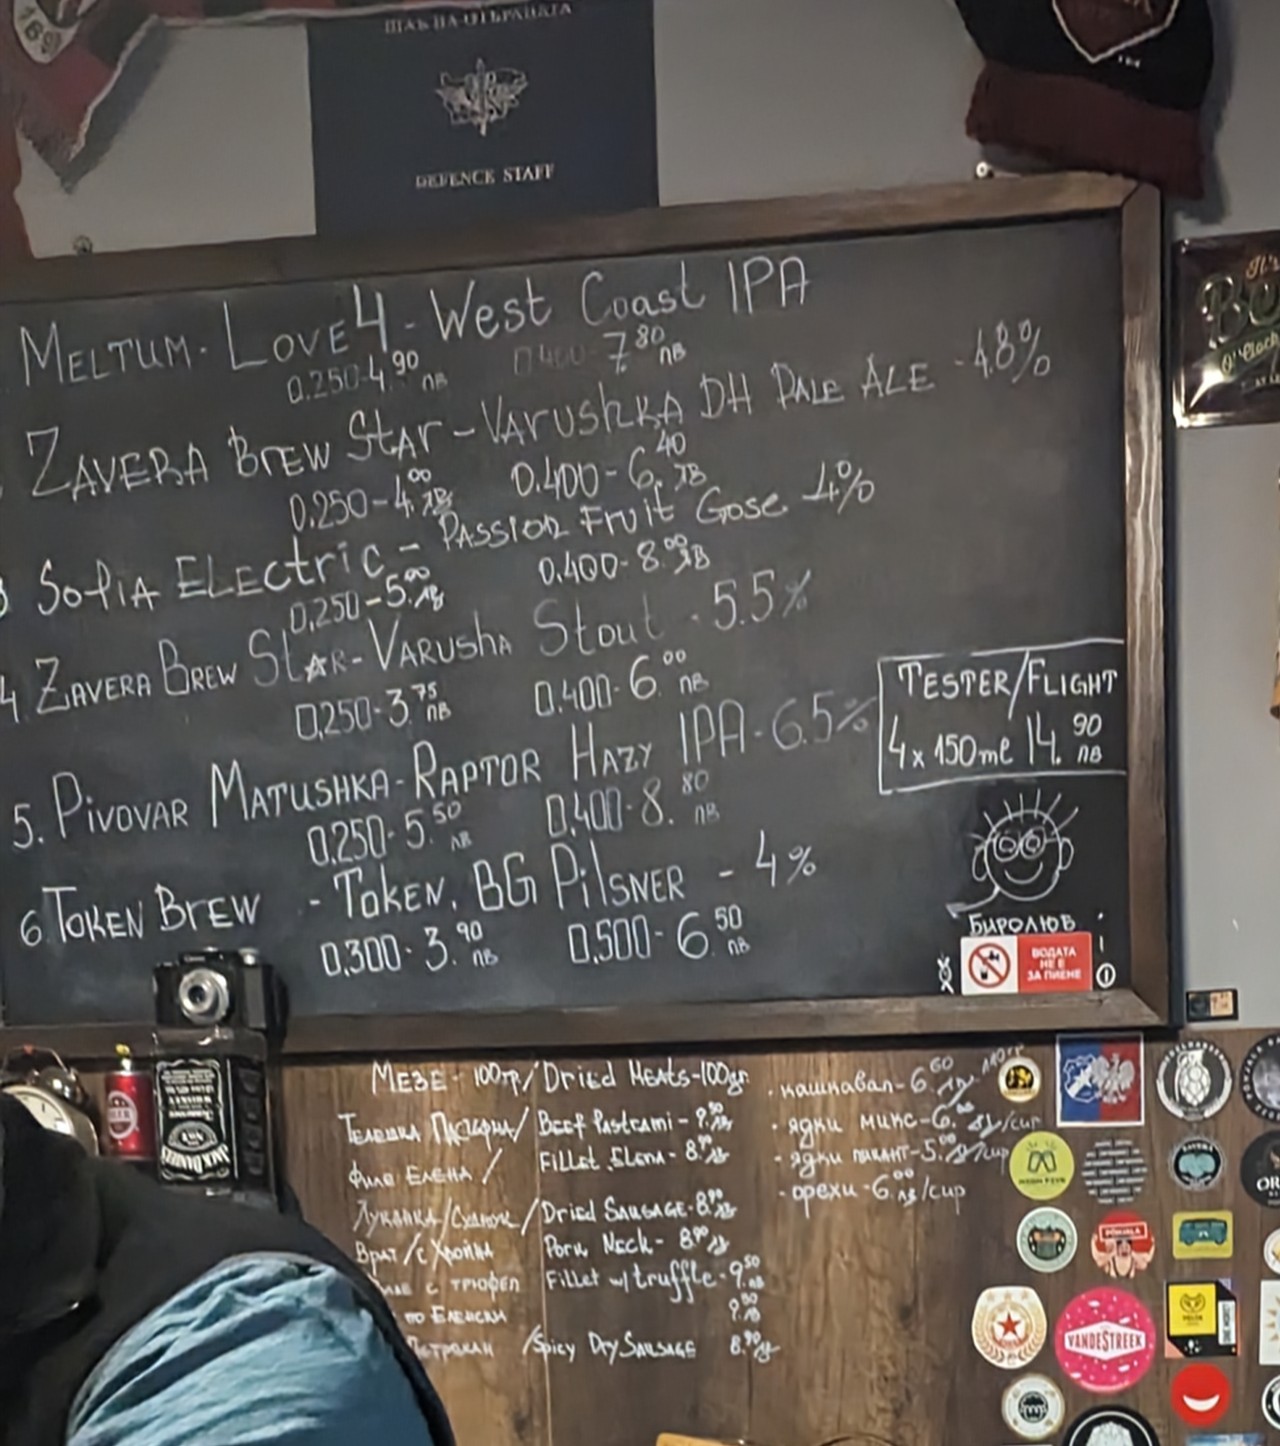 ЩАБ НА ОТБРАНАТА
DEFENCE STAFF
MELTUM. LOVE 4 - West Coast IPA
0.250-4.90 лв 0.400-7.80 лв
ZAVERA BREW StAr - VArushKA DH PALE ALE - 4.8%
0.250-4.00 лв 0.400-6.40 лв
3 SofiA ELEctric - PASSION Fruit Gose - 4%
0.250-5.00 лв 0.400-8.00 лв
4. ZAVERA BREW StAR - VARUSHA Stout - 5.5%
0.250-3.75 лв 0.400-6.00 лв
5. PIVOVAR MATUSHKA - RAPTOR HAZY IPA - 6.5%
0.250-5.50 лв 0.400-8.80 лв
6 TOKEN BREW - TOKEN. BG PilSNER - 4%
0.300-3.90 лв 0.500-6.50 лв
TESTER/FLIGHT
4x150ml 14.90 лв
БИРОЛЮБ
ВОДАТА
НЕ Е
ЗА ПИЕНЕ
O'Clock
JACK DANIEL'S
МЕЗЕ - 100гр/Dried Meats-100gr.
Beef Pastrami -
ФИЛЕ ЕЛЕНА / Fillet Elena -
ЛУКАНКА/СУДЖУК / Dried SAUSAGE
ВРАТ/с ХРОЙНА Pork Neck -
С ТРЮФЕЛ Fillet w/truffle - 9.50 лв
ПО ЕЛЕНСКИ
/Spicy Dry SAUSAGE 8.90 лв
· кашкавал - 6.60 лв
· ядки микс - 6.00 лв/cup
- ядки пикант - 5.00 лв/cup
- орехи - 6.00 лв/cup
VANDESTREEK